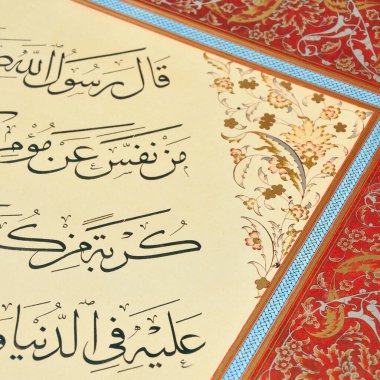 قال رسول الله
من نفس عن مؤمن
كربة من كر
عليه في الدنيا و